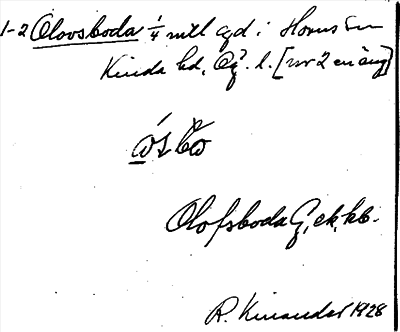 1-2 Olovsboda 1/4 mtl gd i Horns sn
Kinda hd, Ög. l. [nr 2 en äng]
Olofsboda G, ek, kb.
R. Kinander 1928